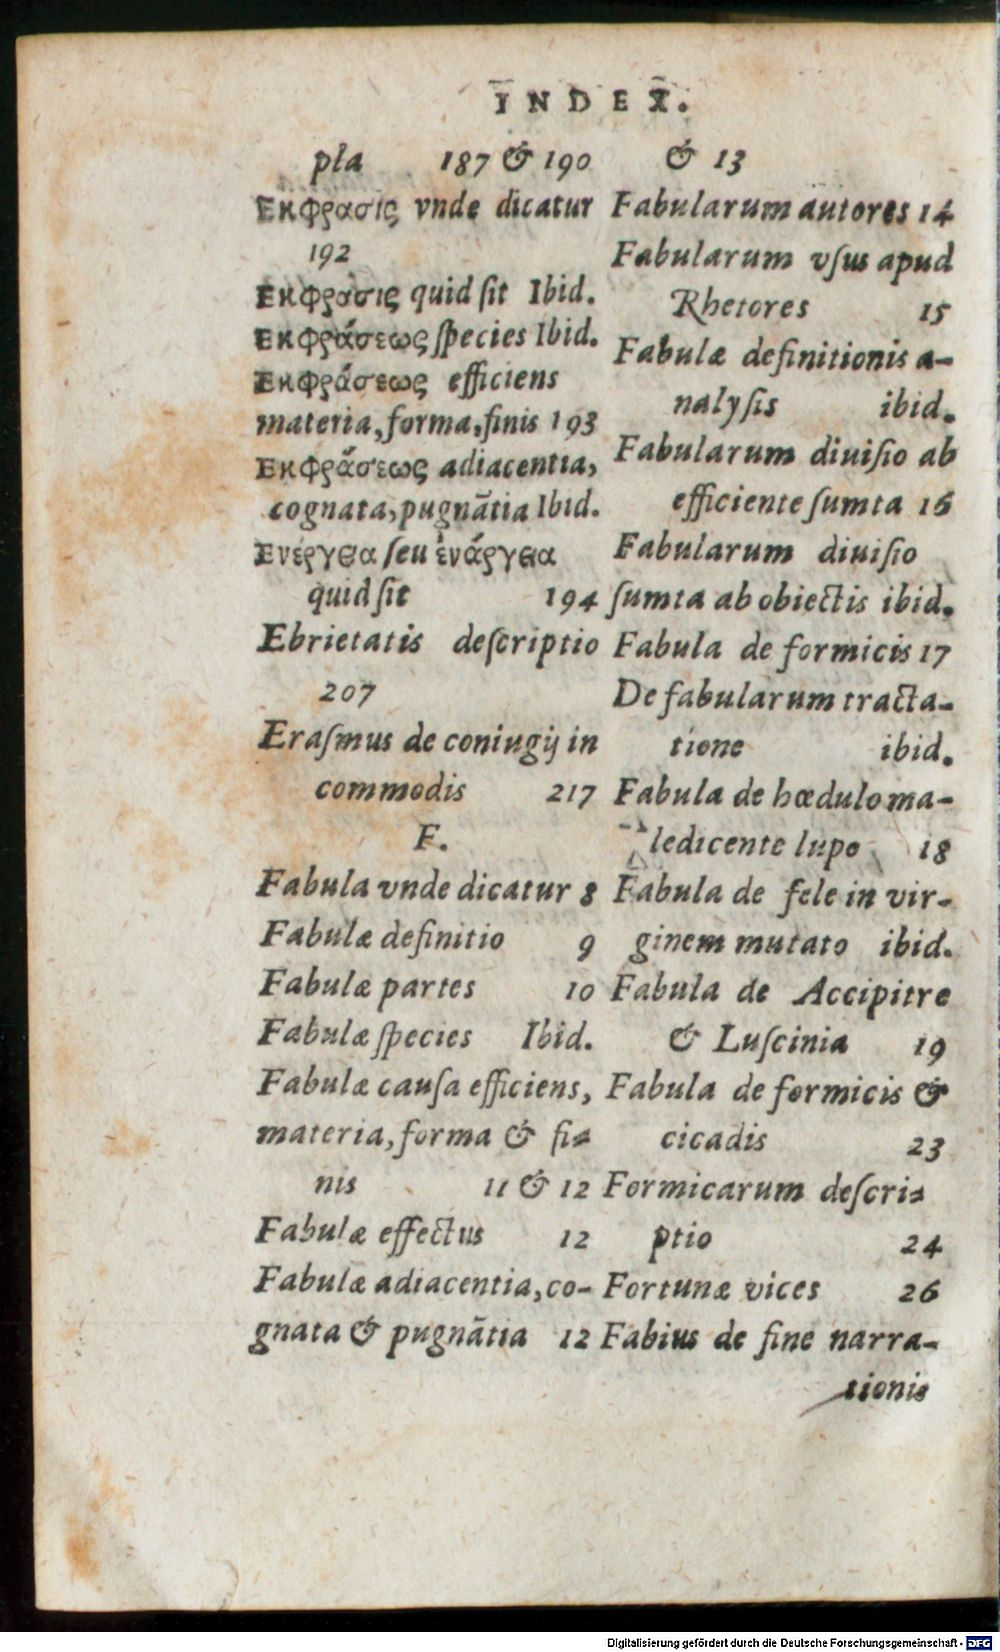 INDEX.
pla 187 & 190
Εκφρασις vnde dicatur
192
Εκφράσις quid ſit Ibid.
Εκφράσεως ſpecies Ibid.
Εκφράσεως efficiens
materia, forma, finis 193
Εκφράσεως adiacentia,
cognata, pugnãtia Ibid.
Ενέργεια ſeu ἐνάργεια
quid ſit 194
Ebrietatis deſcriptio
207
Eraſmus de coniugij in
commodis 217
F.
Fabula vnde dicatur 8
Fabulæ definitio 9
Fabulæ partes 10
Fabulæ ſpecies Ibid.
Fabulæ cauſa efficiens,
materia, forma & fi-
nis 11 & 12
Fabulæ effectus 12
Fabulæ adiacentia, co-
gnata & pugnãtia 12
& 13
Fabularum autores 14
Fabularum vſus apud
Rhetores 15
Fabulæ definitionis a-
nalyſis ibid.
Fabularum diuiſio ab
efficiente ſumta 16
Fabularum diuiſio
ſumta ab obiectis ibid.
Fabula de formicis 17
De fabularum tracta-
tione ibid.
Fabula de hœdulo ma-
ledicente lupo 18
Fabula de fele in vir-
ginem mutato ibid.
Fabula de Accipitre
& Luſcinia 19
Fabula de formicis &
cicadis 23
Formicarum deſcri-
ptio 24
Fortunæ vices 26
Fabius de fine narra-
tionis
Digitalisierung gefördert durch die Deutsche Forschungsgemeinschaft - DFG